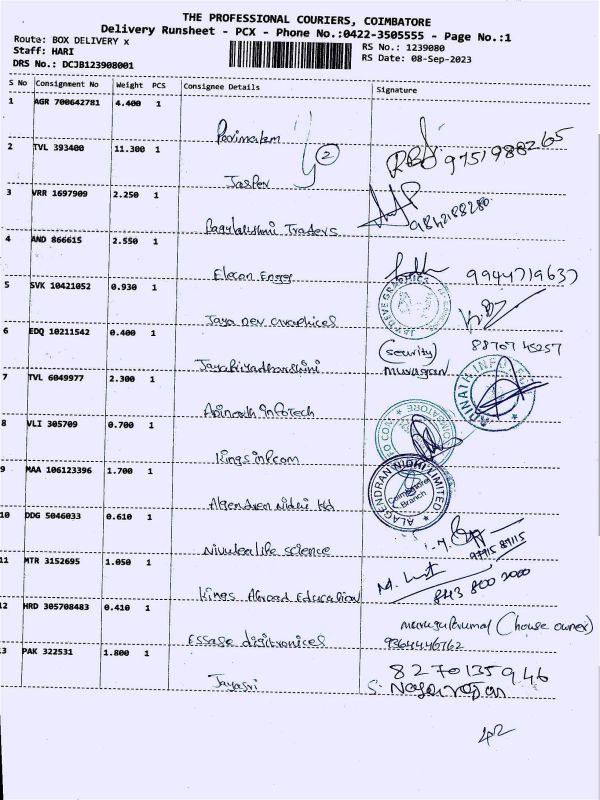 THE PROFESSIONAL COURIERS, COIMBATORE
Delivery Runsheet - PCX - Phone No.:0422-3505555 - Page No.:1
Route: BOX DELIVERY x
RS No.: 1239080
Staff: HARI
RS Date: 08-Sep-2023
DRS No.: DCJB123908001
S No Consignment No Weight PCS Consignee Details Signature
1 AGR 700642781 4.400 1
2 TVL 393400 11.300 1 2
Jasper
3 VRR 1697909 2.250 1
Traders
4 AND 866615 2.550 1
Elecon Engg 9944719637
5 SVK 10421052 0.930 1
6 EDQ 10211542 0.400 1
(security) 88707 45257
murugan
7 TVL 6049977 2.300 1
Infotech
8 VLI 305709 0.700 1
Kings infcom
9 MAA 106123396 1.700 1
ALAGENDRAN NIDHI LIMITED
Coimbatore Branch
10 DDG 5046033 0.610 1
life science
11 MTR 3152695 1.050 1
Kings Abroad Education 843 800 2000
12 HRD 305708483 0.410 1
(house owner)
Essae digitronices 9364446762
13 PAK 322531 1.800 1 8270135946
Jayasri S. Nagarajan